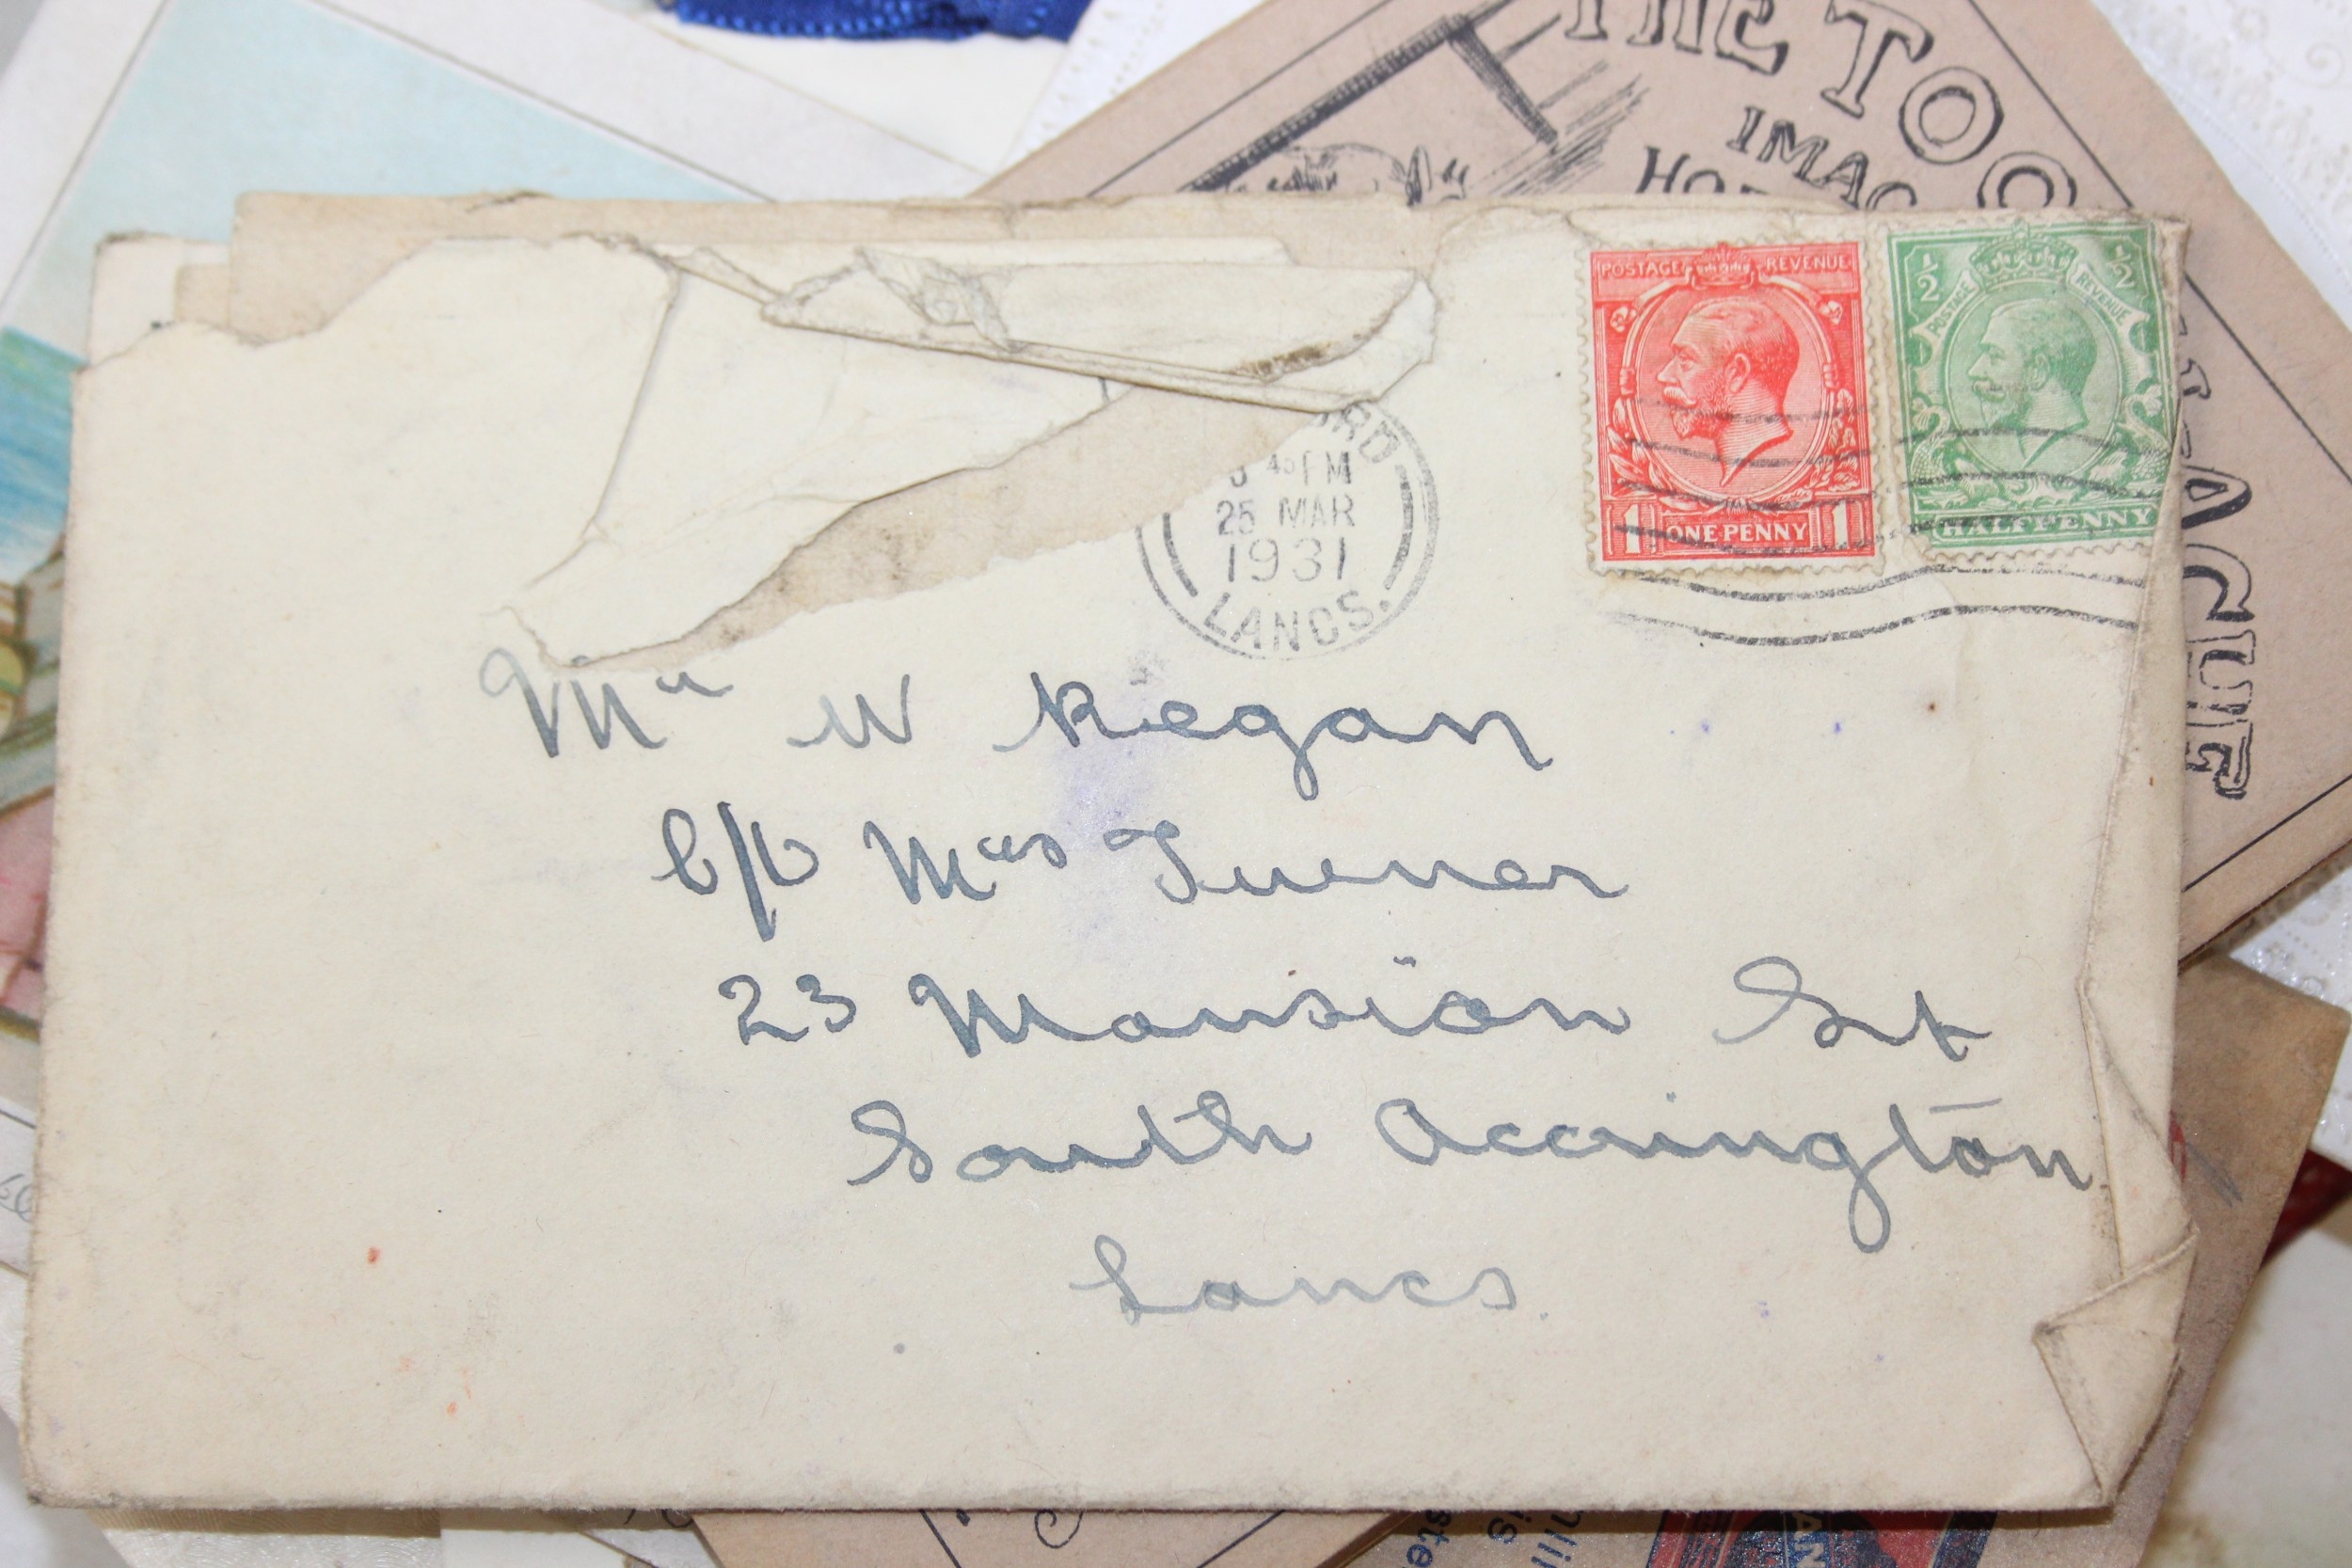 THE TOO
IMAG
POSTAGE REVENUE
1 ONE PENNY 1
½ ½
POSTAGE REVENUE
HALFPENNY
45 PM
25 MAR
1931
LANCS.
Mr W Regan
C/o Mrs Turner
23 Mansion St
South Accrington
Lancs.